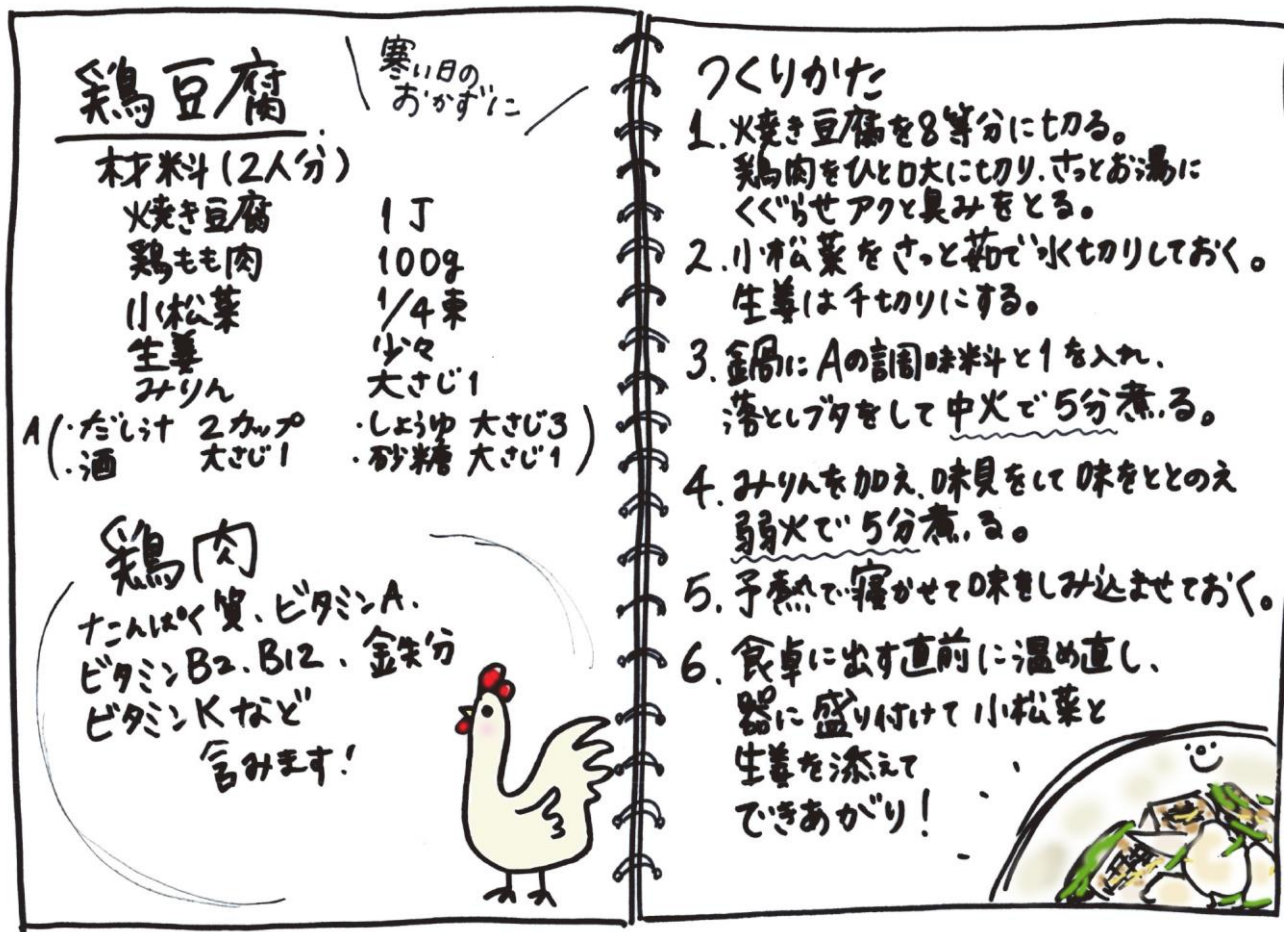 鶏豆腐
寒い日の
おかずに
材料(2人分)
焼き豆腐 1丁
鶏もも肉 100g
小松菜 1/4束
生姜 少々
みりん 大さじ1
A(・だし汁 2カップ ・しょうゆ 大さじ3
・酒 大さじ1 ・砂糖 大さじ1)
鶏肉
たんぱく質、ビタミンA、
ビタミンB2、B12、鉄分
ビタミンKなど
含みます!
つくりかた
1. 焼き豆腐を8等分に切る。
鶏肉をひと口大に切り、さっとお湯に
くぐらせアクと臭みをとる。
2. 小松菜をさっと茹で水切りしておく。
生姜は千切りにする。
3. 鍋にAの調味料と1を入れ、
落としブタをして中火で5分煮る。
4. みりんを加え、味見をして味をととのえ
弱火で5分煮る。
5. 予熱で寝かせて味をしみ込ませておく。
6. 食卓に出す直前に温め直し、
器に盛り付けて小松菜と
生姜を添えて
できあがり!